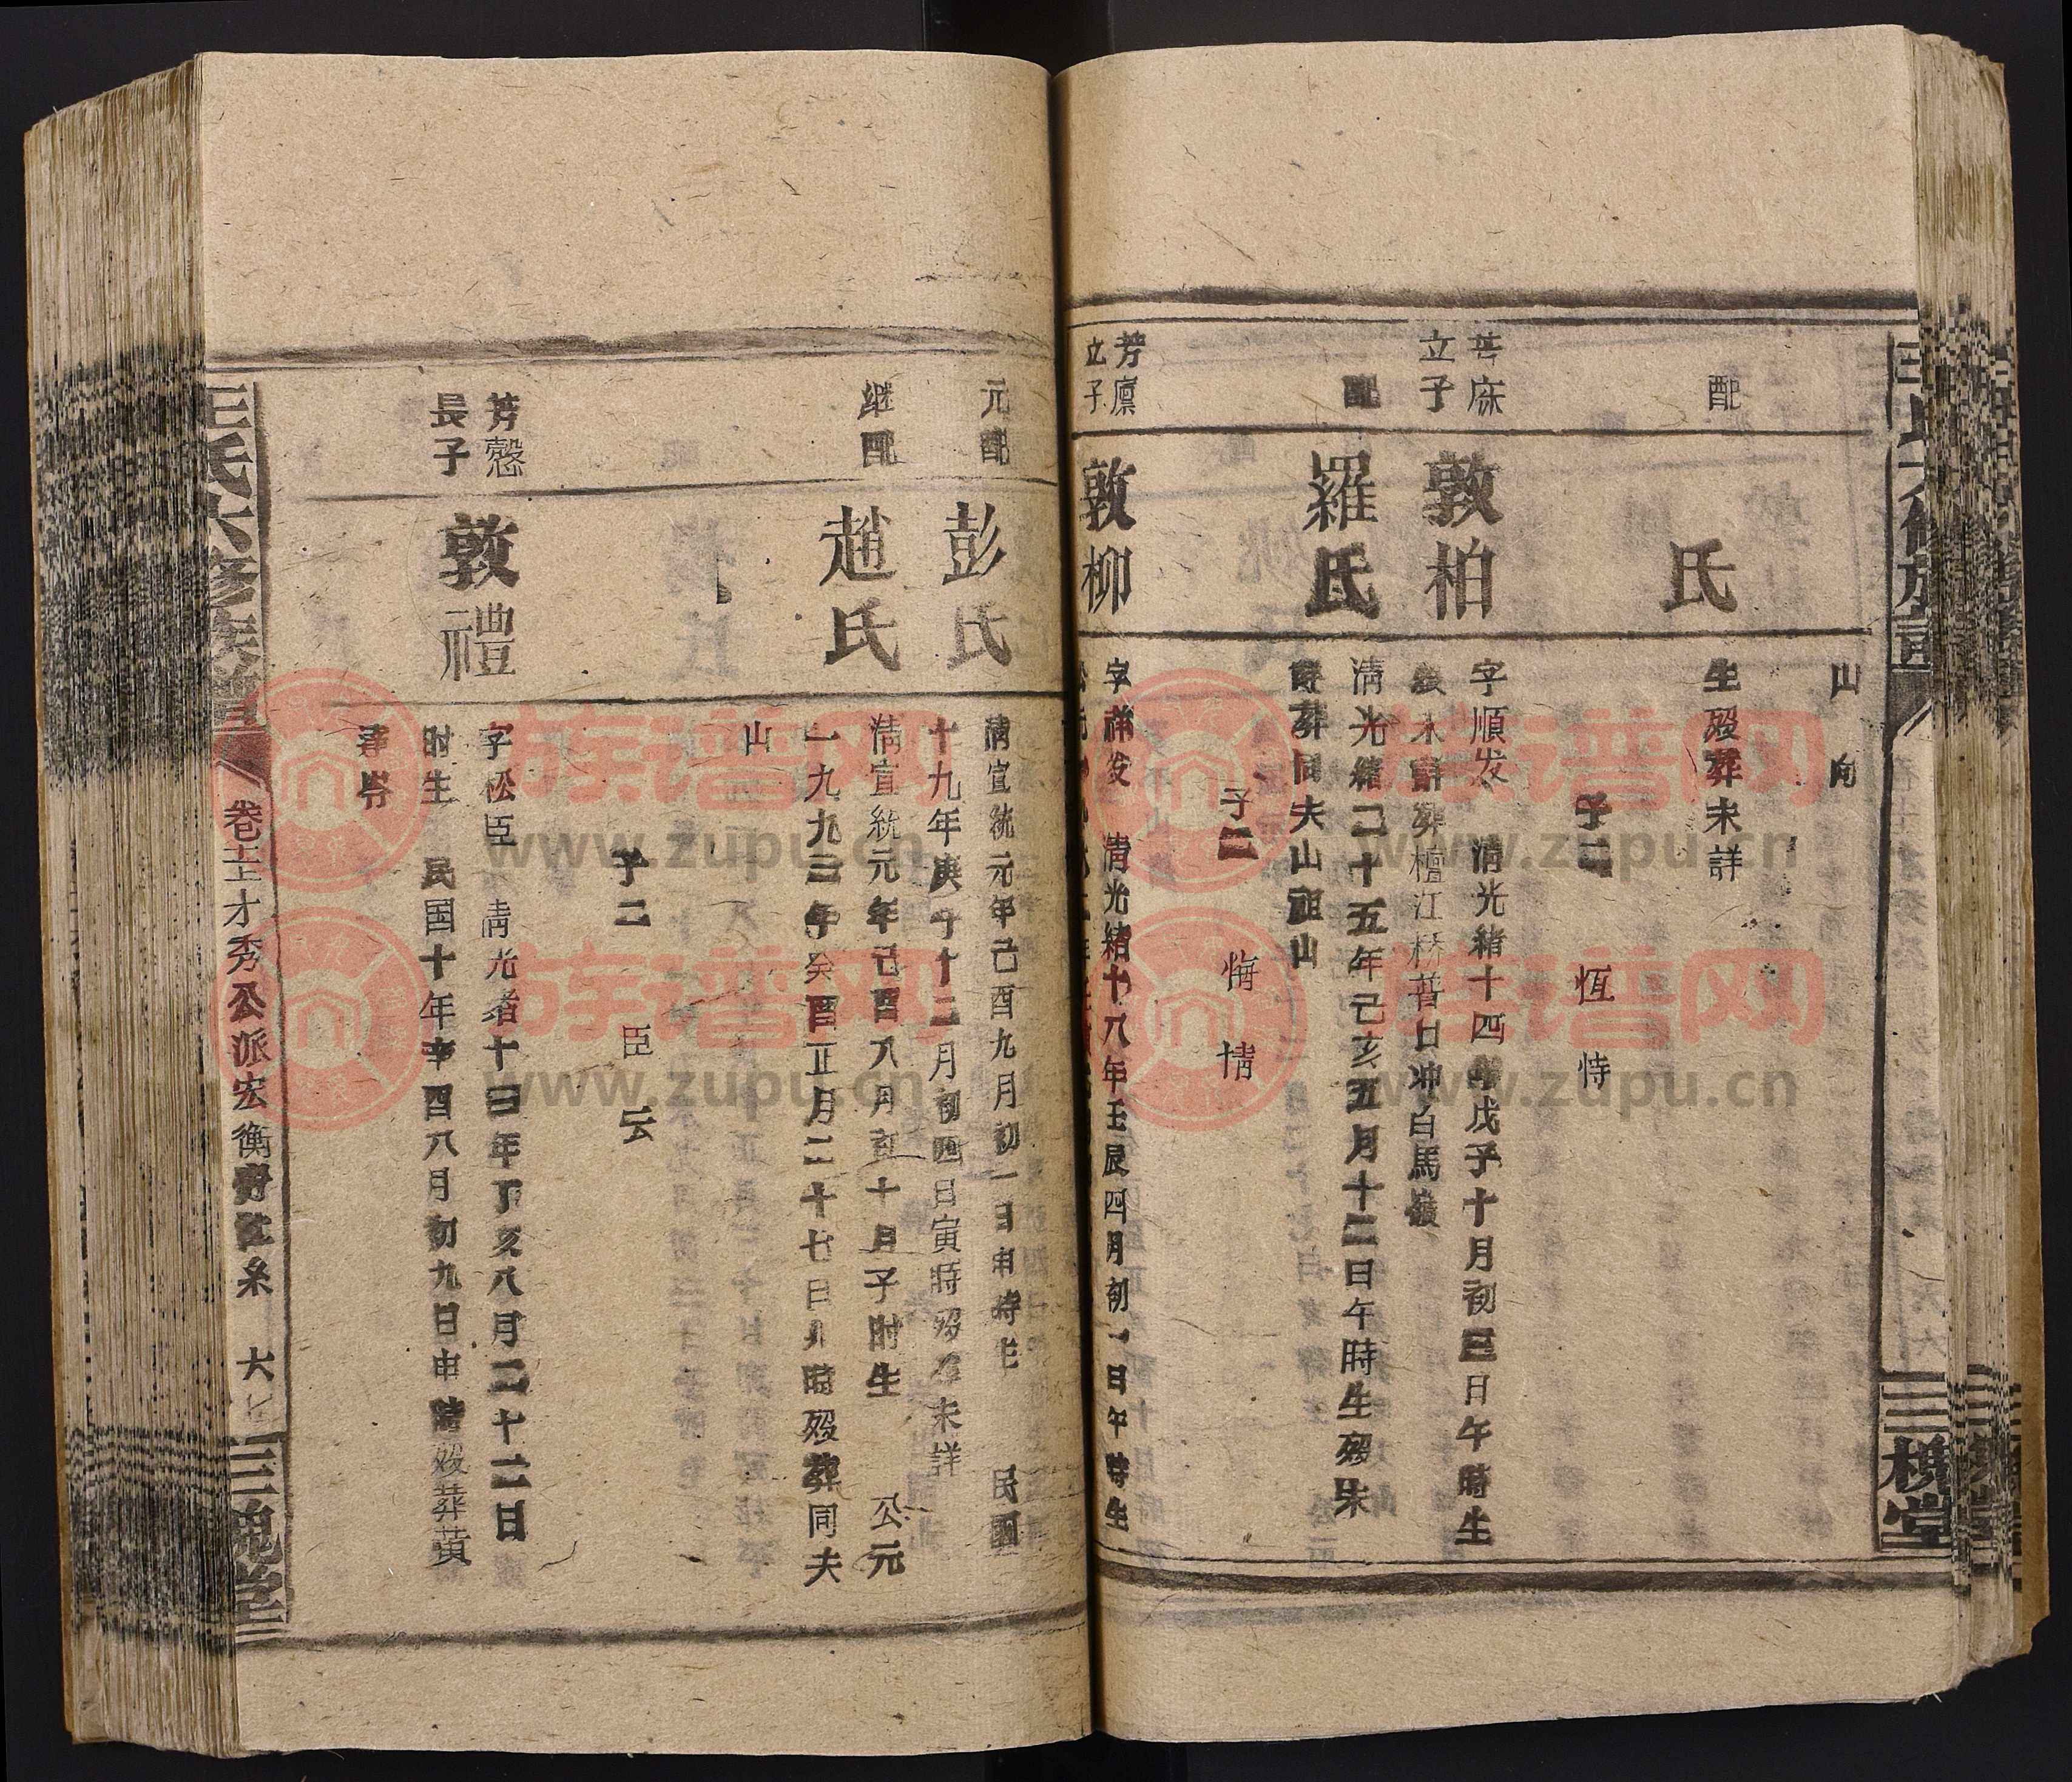 山向
配
氏
生殁葬未詳
子二 恆 恃
芳床
立子
敦柏
字順发 清光緒十四年戊子十月初三日午時生
殁未詳葬檀江桥普廿冲白馬嶺
配
羅氏
清光緒二十五年己亥五月十二日午時生殁未
詳葬同夫山祖山
子二 悔 情
芳廪
立子
敦柳
字補发 清光緒十八年壬辰四月初一日午時生
元配
彭氏
清宣統元年己酉九月初一日申時生 民國
十九年庚午十二月初四日寅時殁葬未詳
继配
趙氏
清宣統元年己酉八月初十日子时生 公元
一九九三年癸酉正月二十七日 時殁葬同夫
山
子二 臣 云
芳慇
長子
敦禮
字松臣 清光者十三年丁亥八月二十二日
时生 民国十年辛酉八月初九日申時殁葬黄
王氏六修族譜
才秀公派宏衡
三槐堂
族谱网
www.zupu.cn